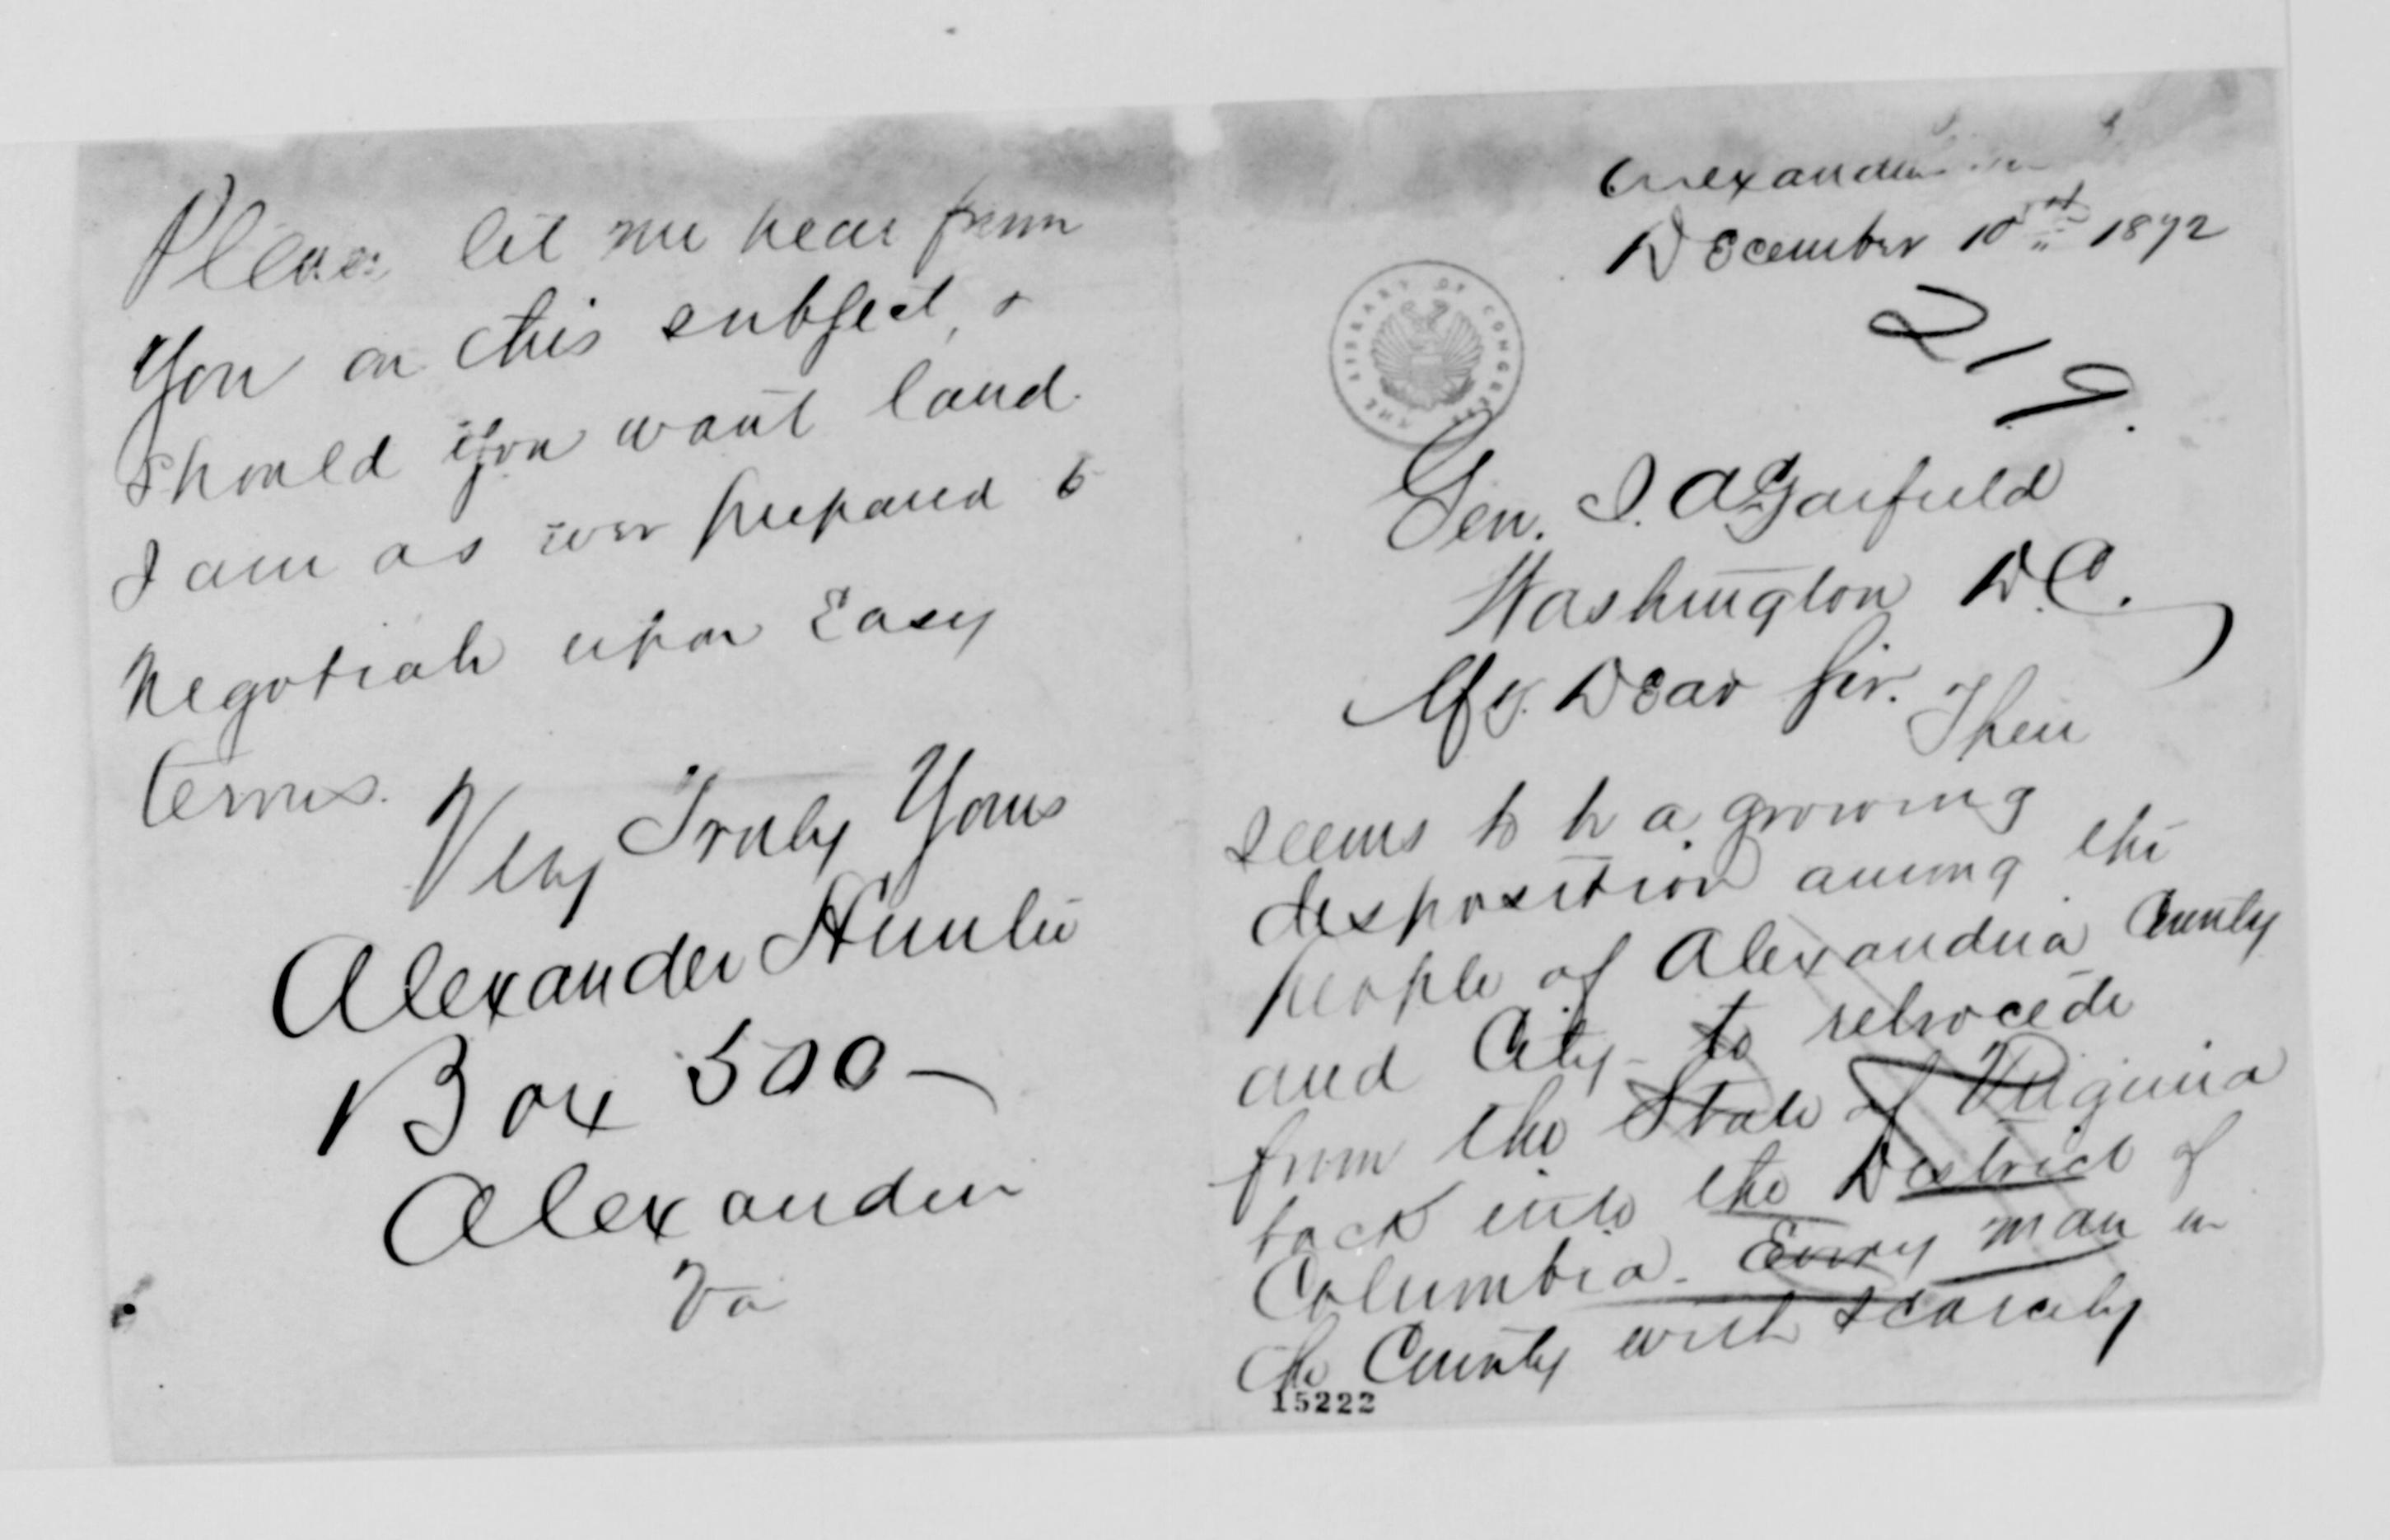 Please let me hear from
you on this subject, &
should you want land
I am as ever prepared to
negotiate upon Easy
terms.
Very Truly Yours
Alexander Hunter
Box 500 —
Alexandria
Va
Alexandria
December 10th 1872
219.
THE LIBRARY OF CONGRESS
Gen. J. A. Garfield
Washington D.C.
My. Dear Sir.
There
seems to be a growing
disposition among the
people of Alexandria County
and City to retrocede
from the State of Virginia
back into the District of
Columbia. Every man in
the County with scarcely
15222